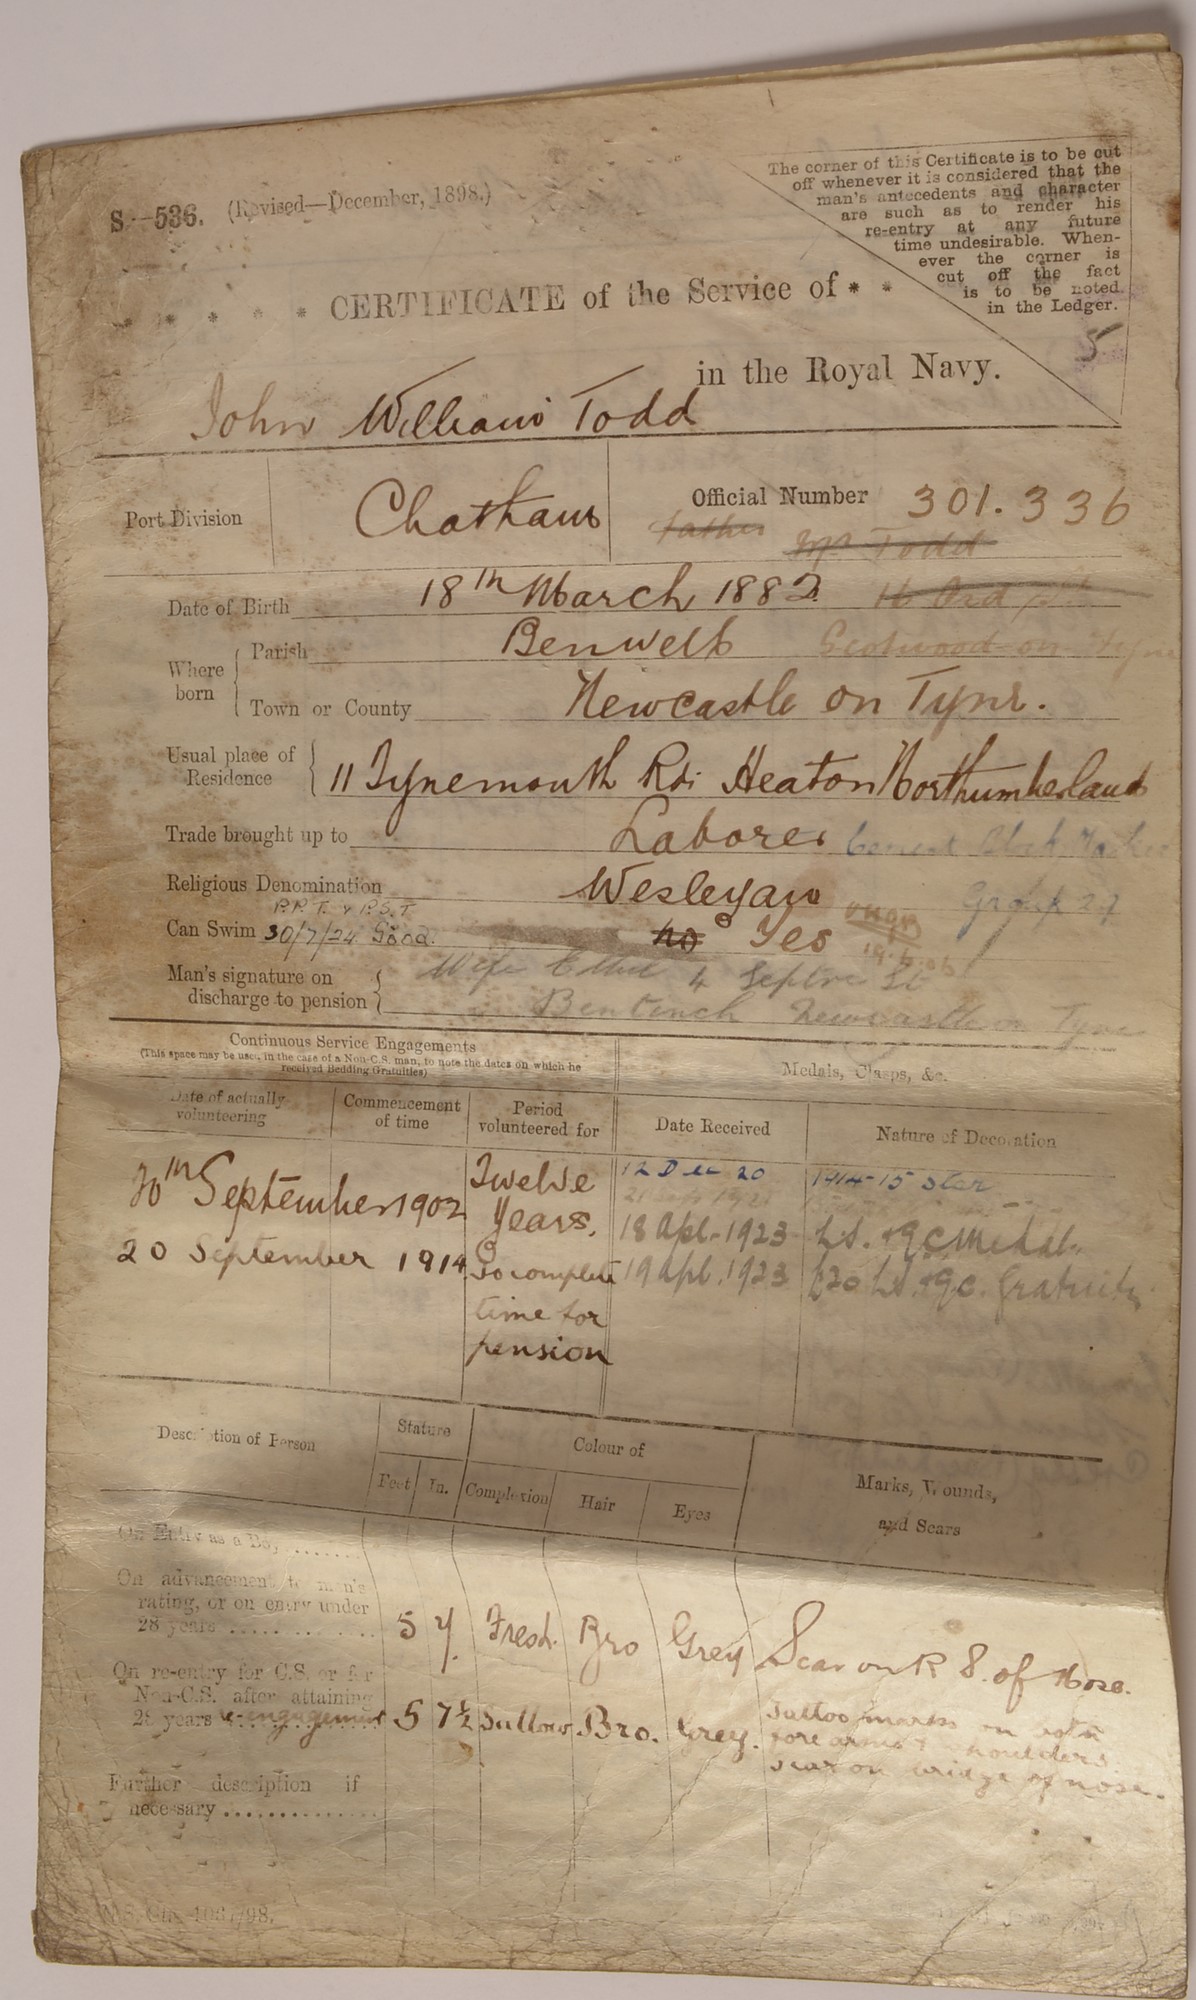 S.—536. (Revised—December, 1898.)
The corner of this Certificate is to be cut
off whenever it is considered that the
man's antecedents and character
are such as to render his
re-entry at any future
time undesirable. When-
ever the corner is
cut off the fact
is to be noted
in the Ledger.
5
CERTIFICATE of the Service of
in the Royal Navy.
John William Todd
Port Division Chatham Official Number 301.336
Father Mr Todd
Date of Birth 18th March 1882. 16 Ord
Where born { Parish Benwell Scotswood-on-Tyne
Town or County Newcastle on Tyne.
Usual place of Residence { 11 Tynemouth Rd. Heaton Northumberland
Trade brought up to Laborer Cement Block Maker
Religious Denomination Wesleyan Group 27
P.P.T. & P.S.T
Can Swim 30/7/24 Good. no Yes
19.6.06
Man's signature on discharge to pension { Wife Ethel 4 St
Bentinck Newcastle on Tyne
Continuous Service Engagements
(This space may be used in the case of a Non-C.S. man, to note the dates on which he
received Bedding Gratuities)
Medals, Clasps, &c.
Date of actually volunteering Commencement of time Period volunteered for Date Received Nature of Decoration
20th September 1902 Twelve Years.
20 September 1914 To complete time for pension
12 Dec 20 1914-15 Star
18 Apl. 1923 L.S. & G C Medal.
19 Apl. 1923 £20 L.S. & G.C. Gratuity
Description of Person Stature Colour of Marks, Wounds,
and Scars
Feet In. Complexion Hair Eyes
On Entry as a Boy
On advancement to man's
rating, or on entry under
28 years 5 7. Fresh. Bro Grey Scar on R S. of Nose.
On re-entry for C.S. or for
Non-C.S. after attaining
28 years re-engagement 5 7½ Sallow Bro. Grey. Tattoo marks on both
forearms & shoulders
scar on bridge of nose.
Further description if
necessary